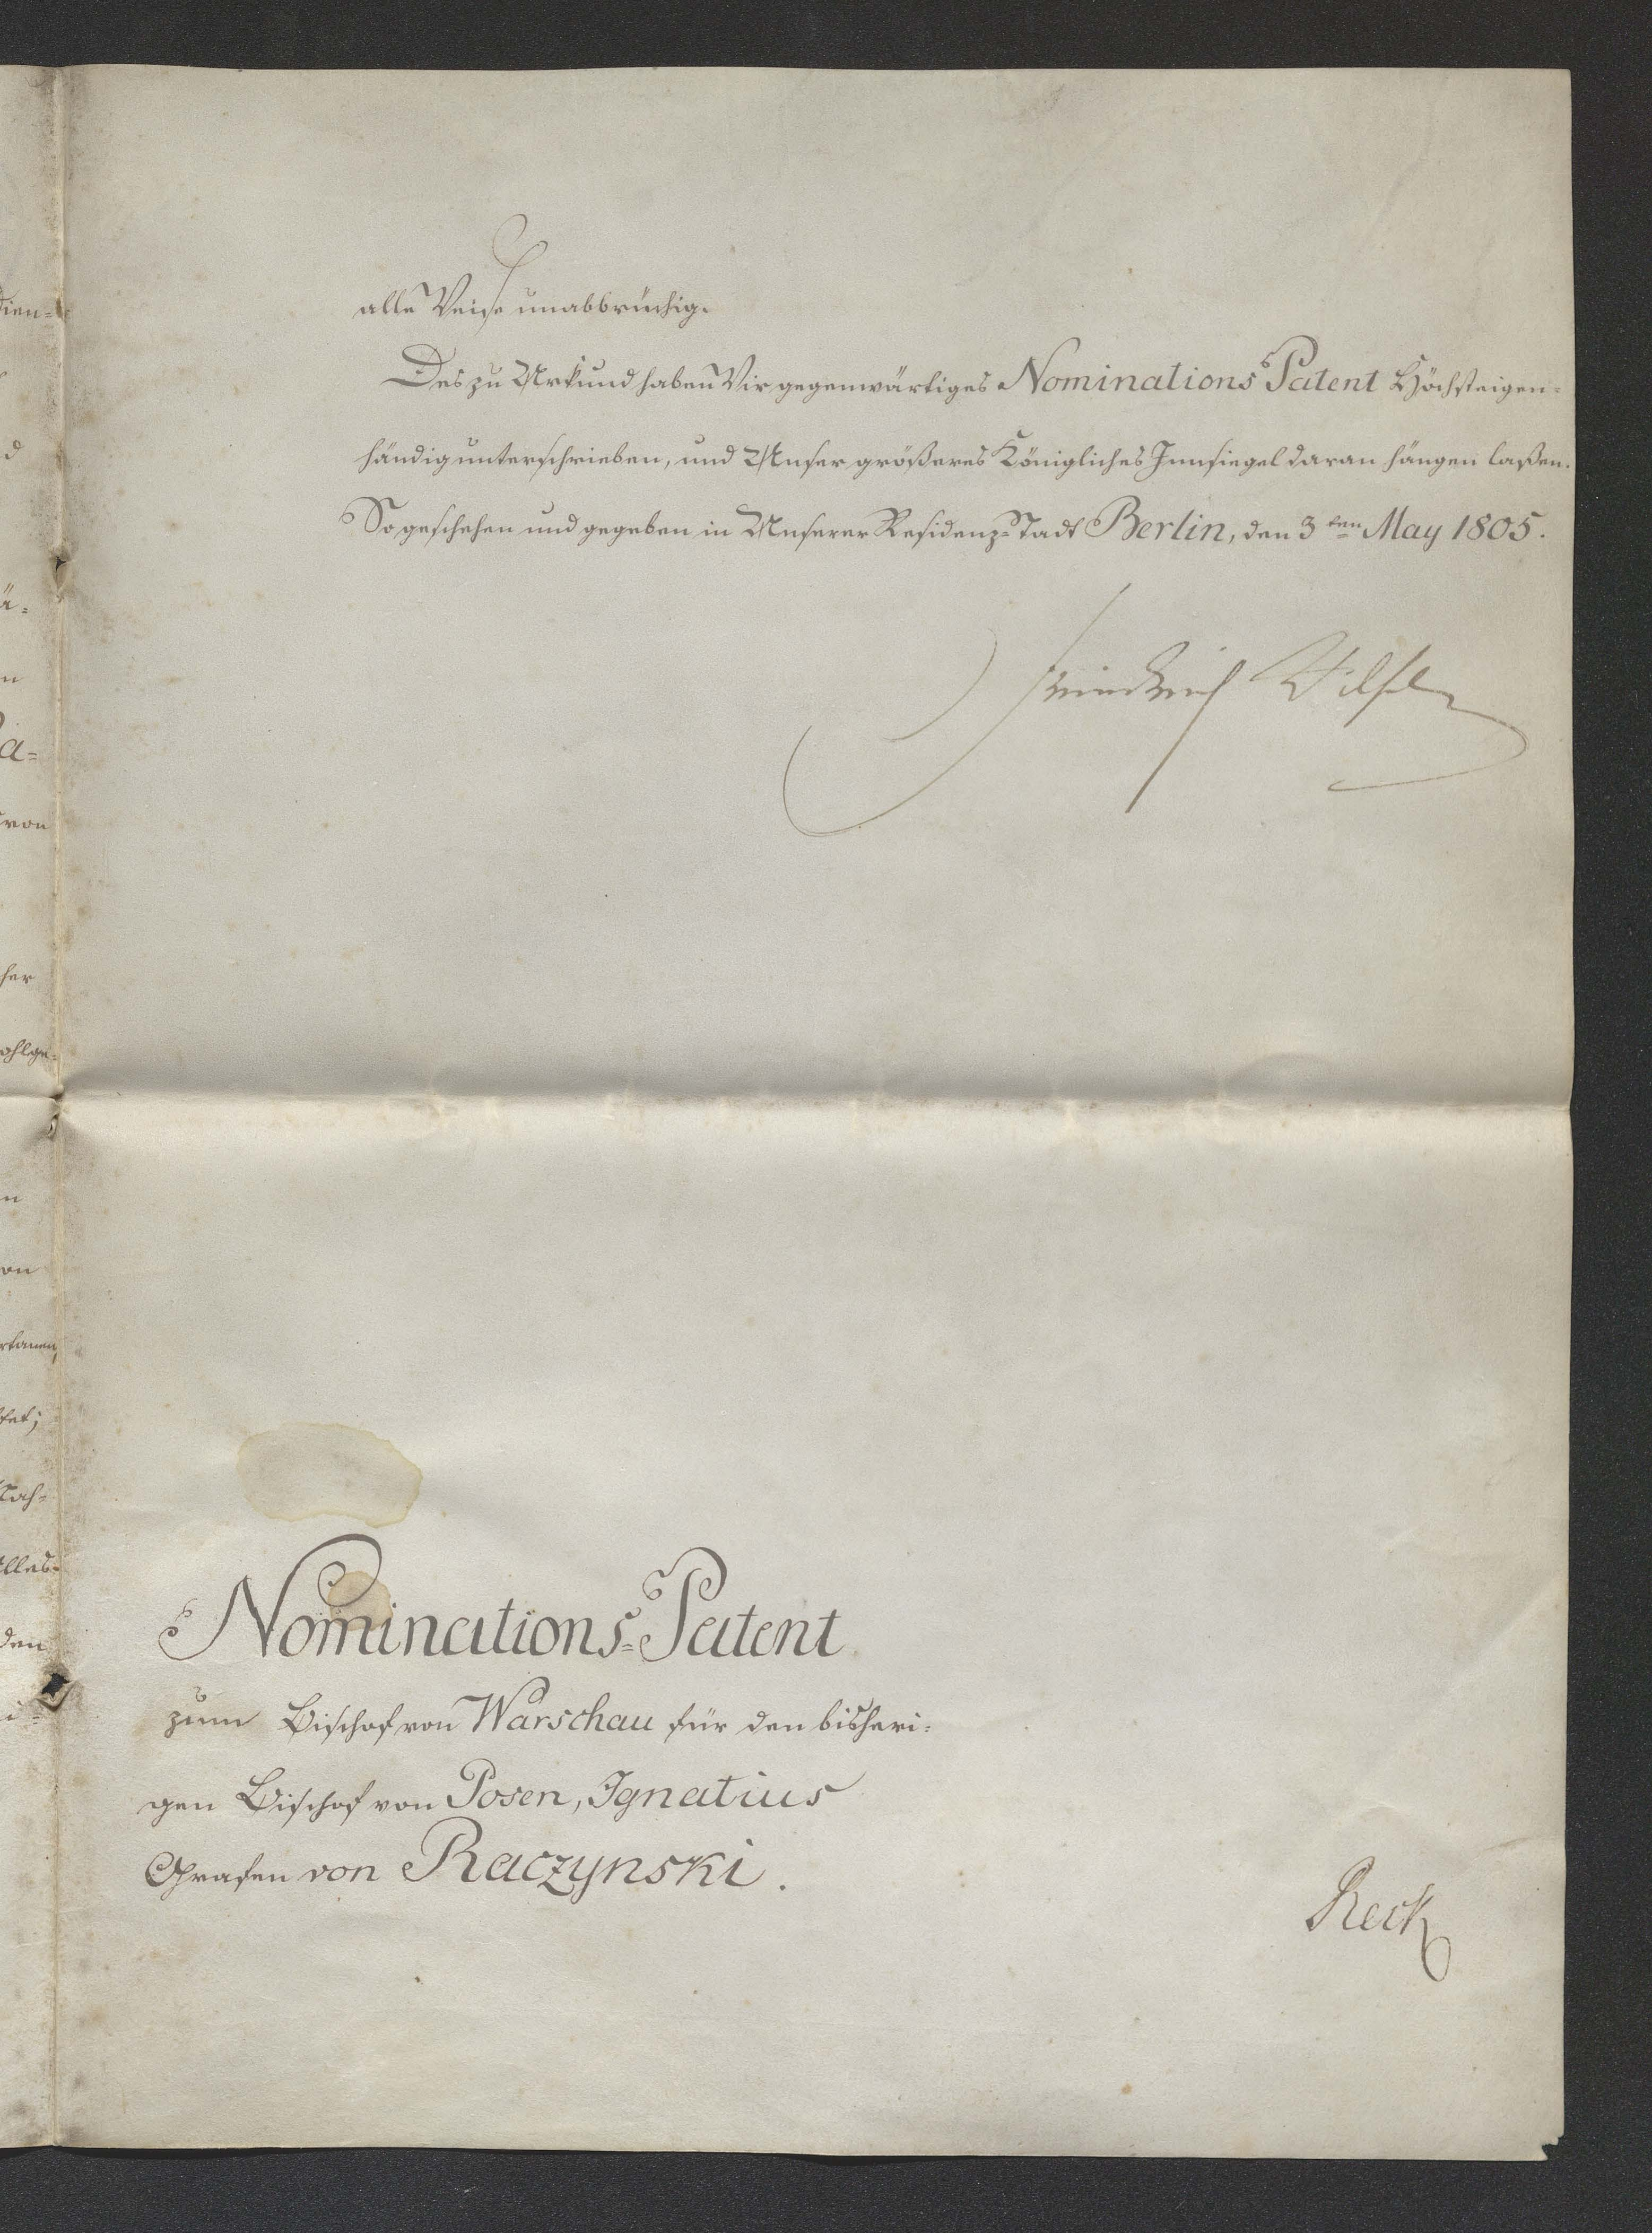 alle Weise unabbrüchig.
Des zu Urkund haben Wir gegenwärtiges Nominations Patent Höchsteigen=
händig unterschrieben, und Unser größeres Königliches Innsiegel daran hängen laßen.
So geschehen und gegeben in Unserer Residenz=Stadt Berlin, den 3ten May 1805.
Friedrich Wilhelm
Nominations=Patent
zum Bischof von Warschau für den bisheri=
gen Bischof von Posen, Ignatius
Grafen von Raczynski.
Reck